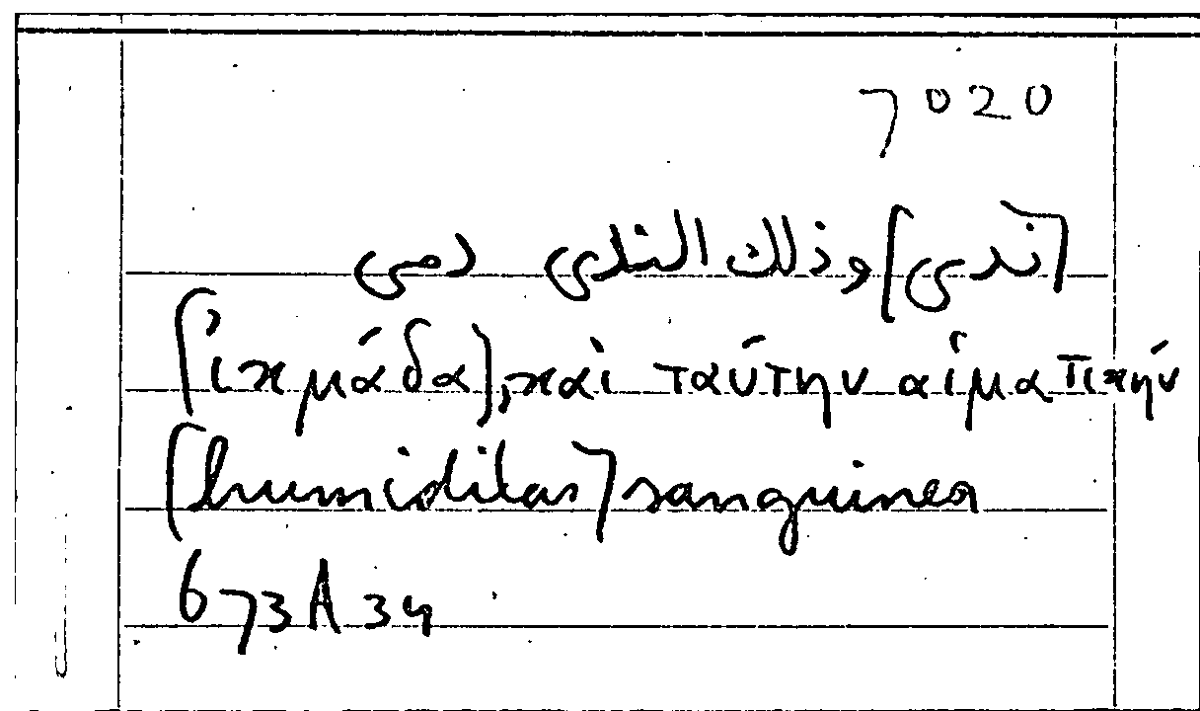 7020
[ندى] وذلك الندى دمى
[ἰκμάδα], καὶ ταύτην αἱματικήν
[humiditas] sanguinea
673A34